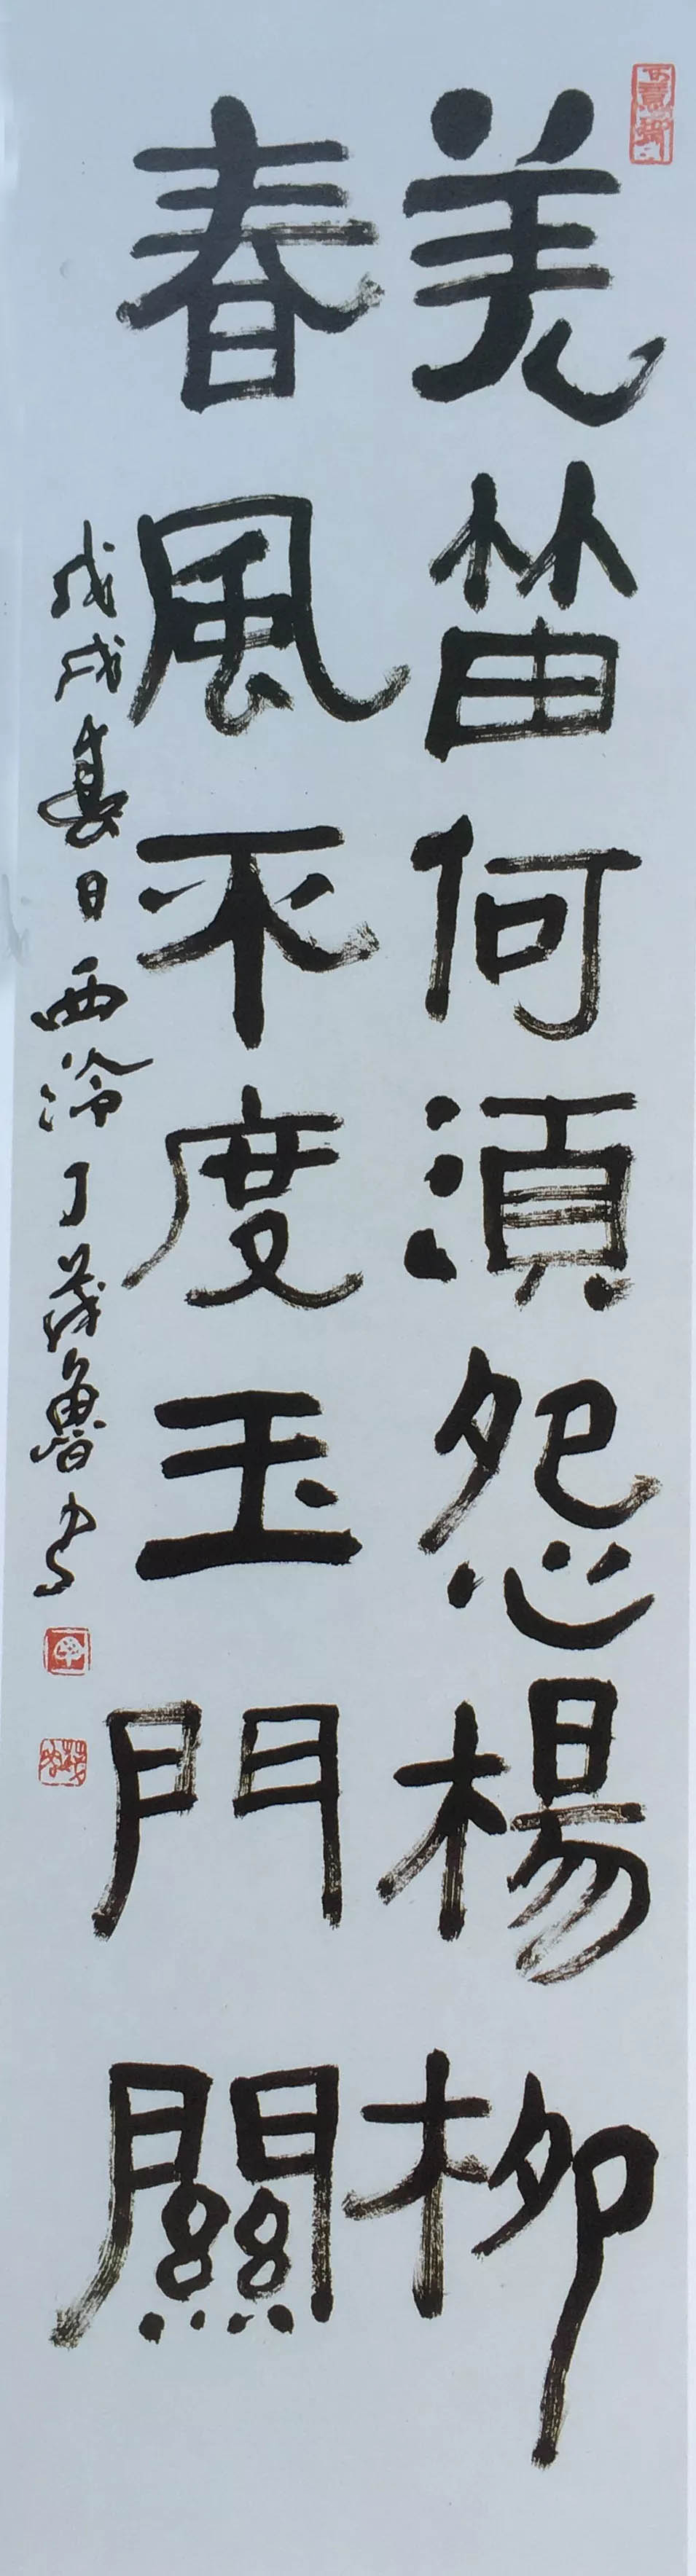 羌笛何須怨楊柳
春風不度玉門關
戊戌春日西泠丁茂魯书